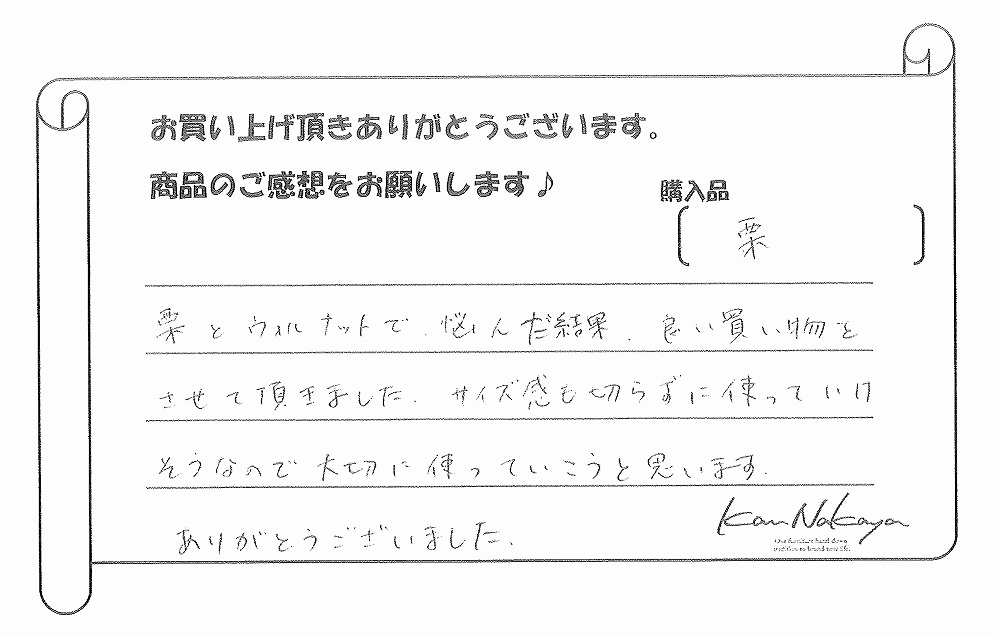 お買い上げ頂きありがとうございます。
商品のご感想をお願いします♪
購入品
栗
栗とウォルナットで、悩んだ結果、良い買い物を
させて頂きました。サイズ感も切らずに使っていけ
そうなので大切に使っていこうと思います。
ありがとうございました。
Kan Nakaya
One furniture hand down
tradition to brand new life.